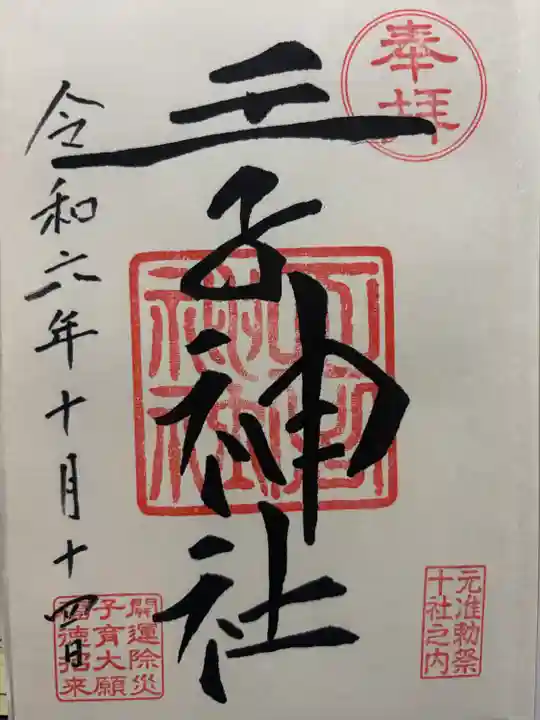 奉拝
王子神社
令和六年十月十四日
元准勅祭
十社之内
開運除災
子育大願